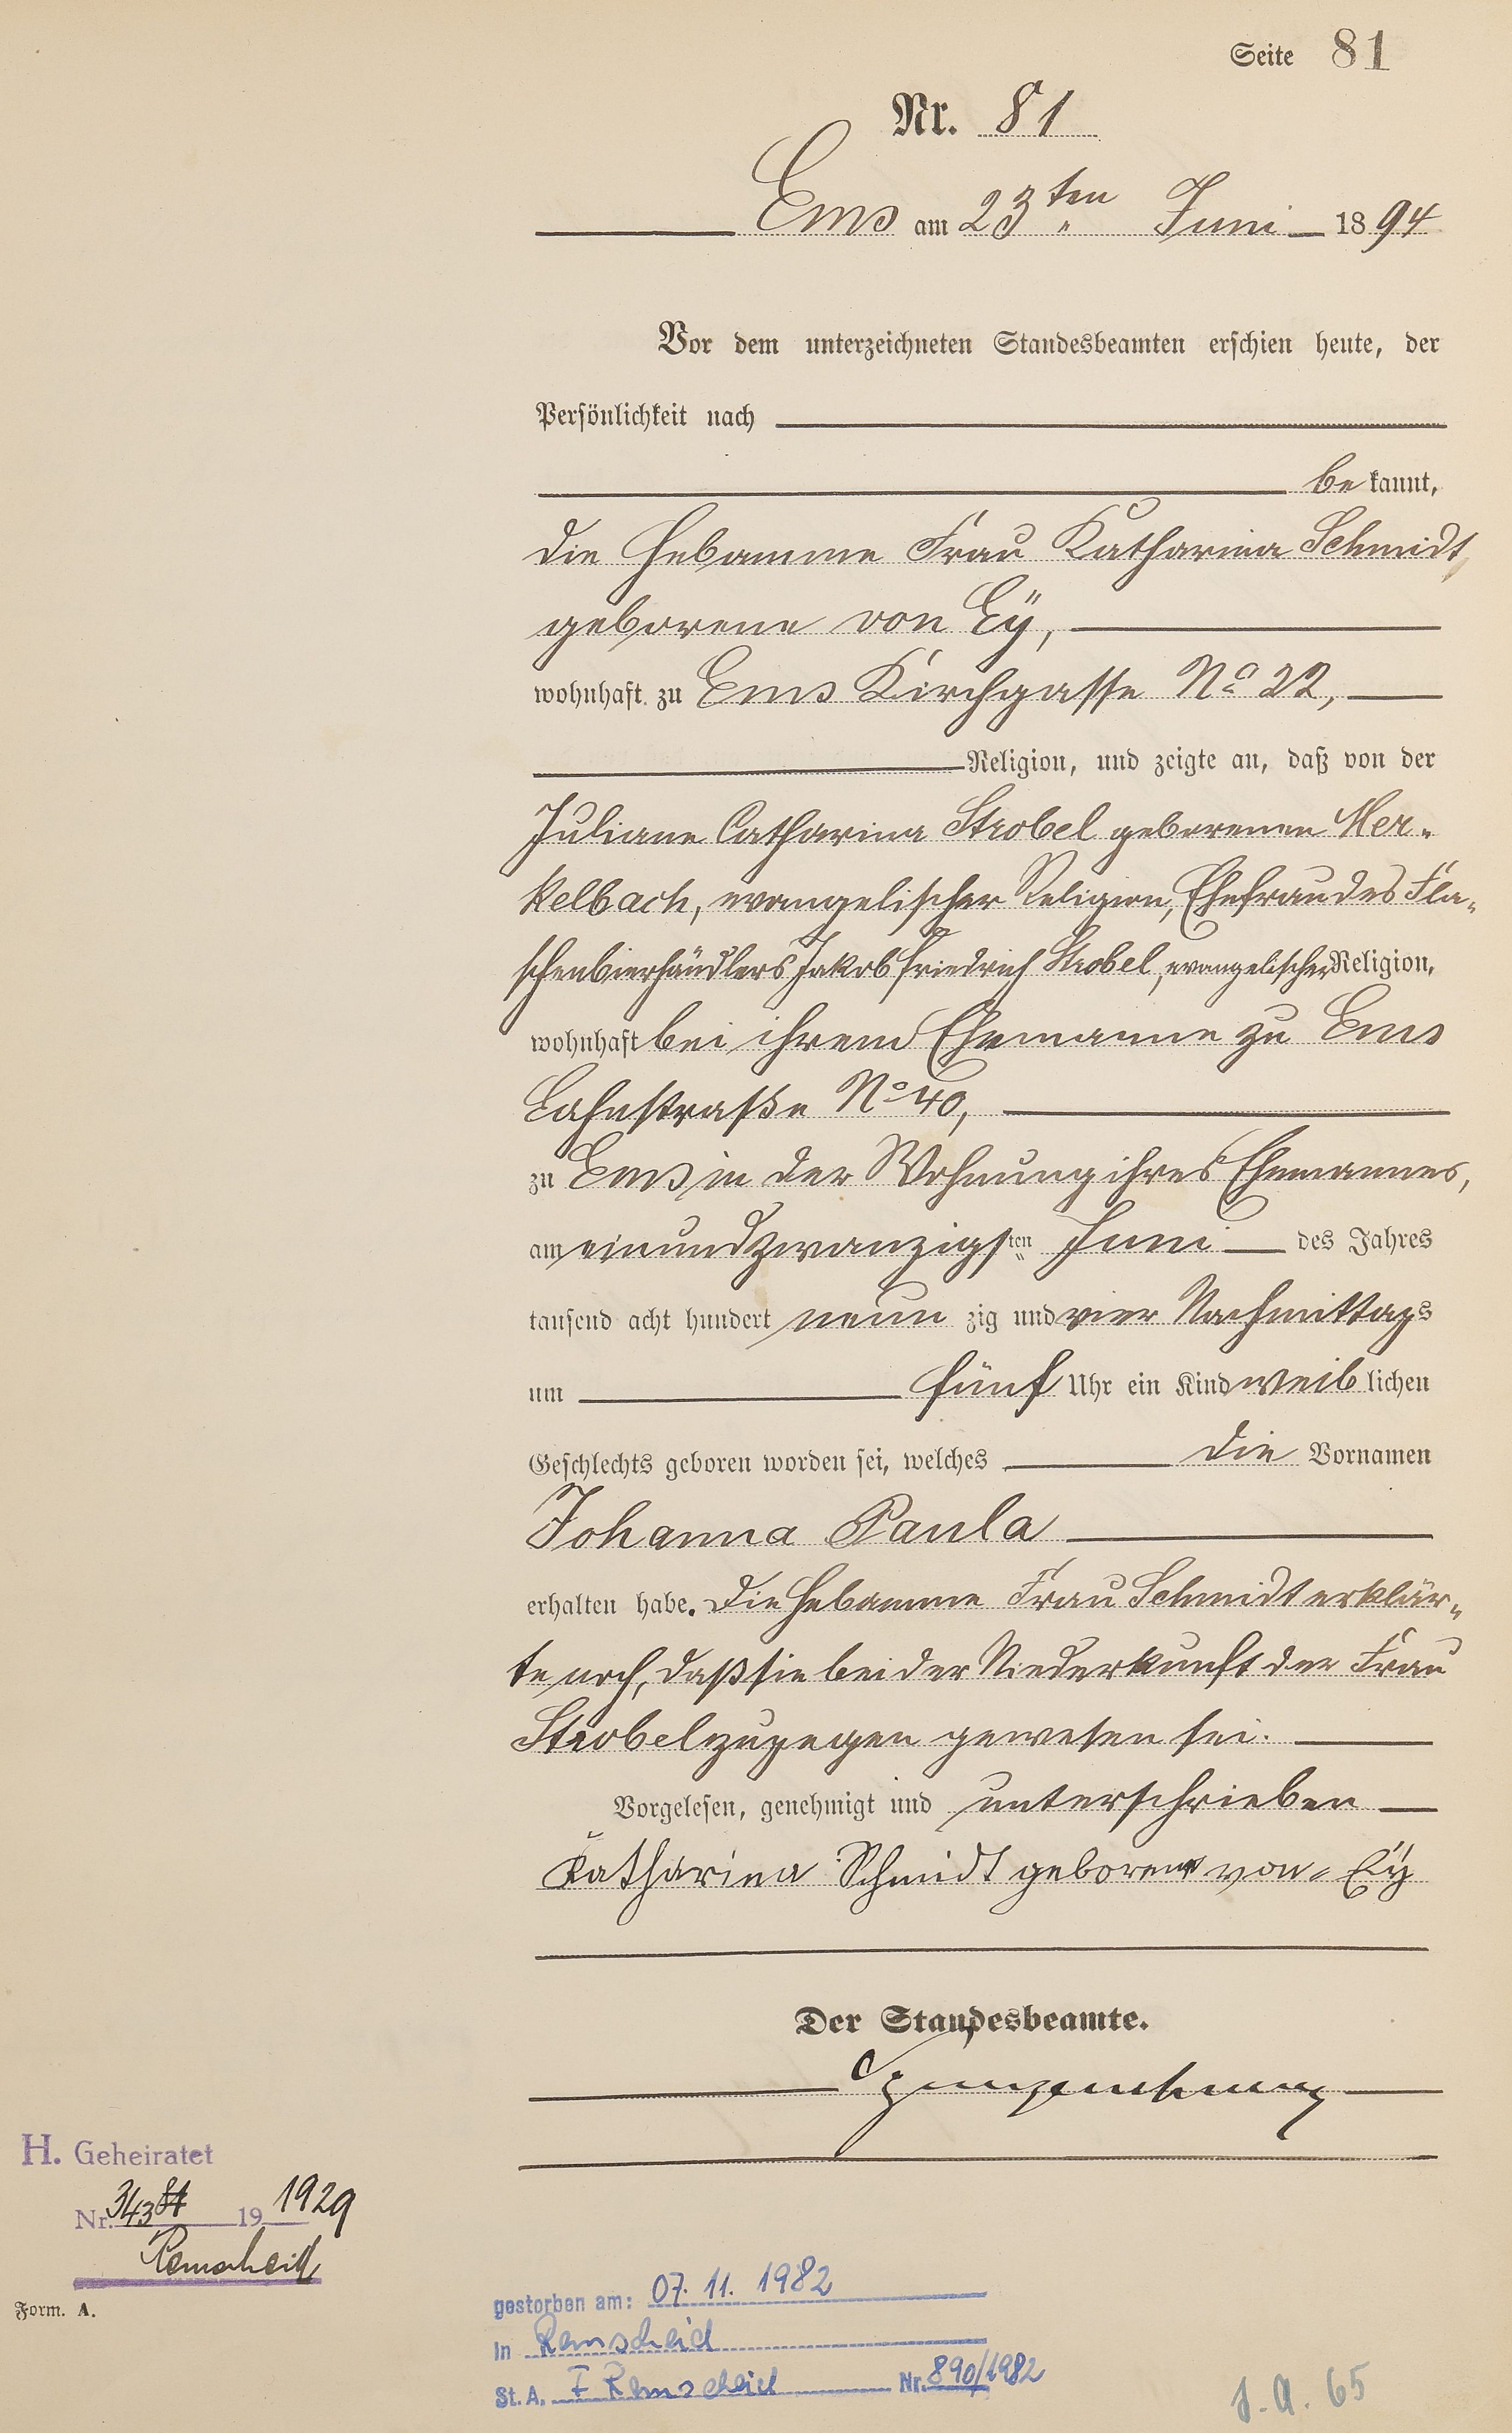 Seite 81
Nr. 81
Ems am 23ten Juni 1894
Vor dem unterzeichneten Standesbeamten erschien heute, der
Persönlichkeit nach
bekannt,
die Hebamme Frau Katharina Schmidt,
geborene von Eÿ,
wohnhaft zu Ems Kirchgasse No 22,
Religion, und zeigte an, daß von der
Juliane Catharina Strobel geborenen Mer-
kelbach, evangelischer Religion, Ehefrau des Fla-
schenbierhändlers Jakob Friedrich Strobel, evangelischer Religion,
wohnhaft bei ihrem Ehemanne zu Ems
Lahnstraße No 40,
zu Ems in der Wohnung ihres Ehemannes,
am einundzwanzigsten Juni des Jahres
tausend acht hundert neunzig und vier Nachmittags
um fünf Uhr ein Kind weiblichen
Geschlechts geboren worden sei, welches die Vornamen
Johanna Paula
erhalten habe. Die Hebamme Frau Schmidt erklär-
te noch, daß sie bei der Niederkunft der Frau
Strobel zugegen gewesen sei.
Vorgelesen, genehmigt und unterschrieben
Katharina Schmidt geborene von Eÿ
Der Standesbeamte.
H. Geheiratet
Nr. 343 19 1929
Remscheid
Form. A.
gestorben am: 07. 11. 1982
in Remscheid
St. A. I Remscheid Nr. 890/1982
J. A. 65